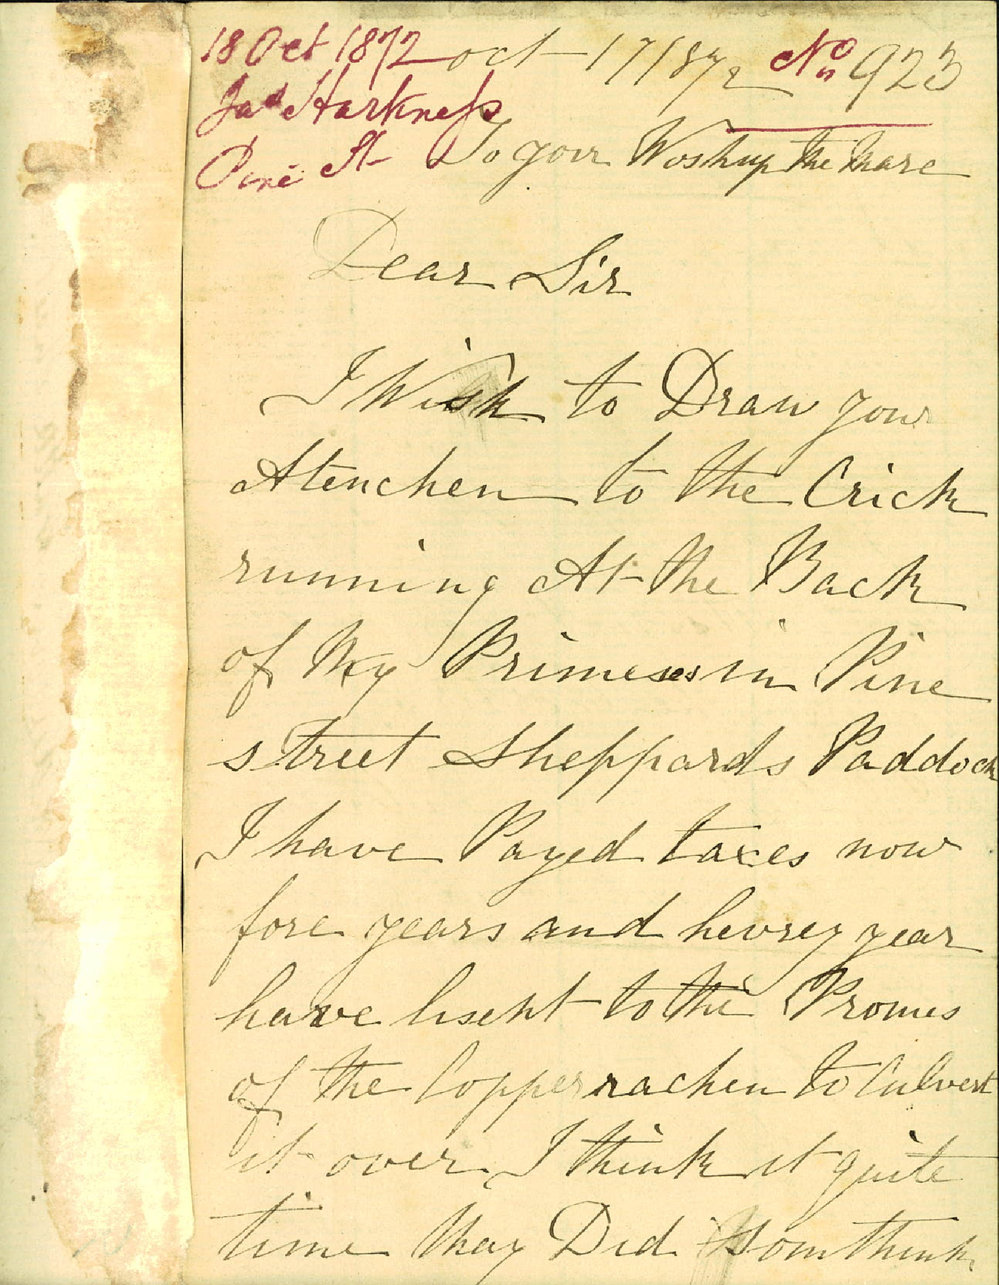 18 Oct 1872 oct 17 1872 No 923
Jas Harkness
Pine St To your Woshup the Mare
Dear Sir
I Wish to Draw your
Atenchen to the Crick
running At the Back
of My Primeses in Pine
street Sheppards Paddock
I have Payed taxes now
fore years and hevrey year
have lisent to the Promes
of the Copperrachen to Culvert
it over I think it quite
time thay Did Somthink